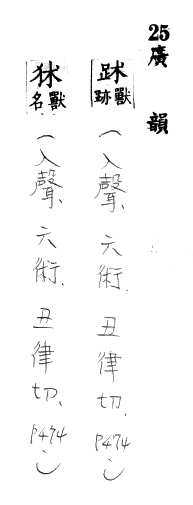 25廣韻
䟣獸跡(入聲、六術、丑律切、P474)
㹤獸名(入聲、六術、丑律切、P474)